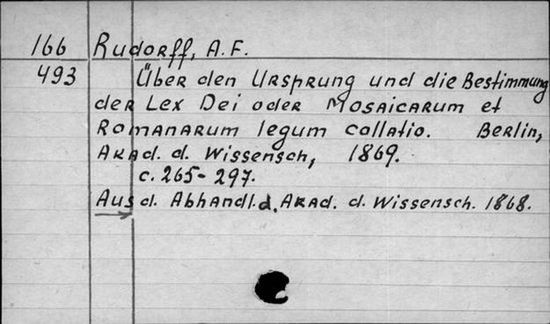 166 Rudorff, A.F.
493 Über den Ursprung und die Bestimmung
der Lex Dei oder Mosaicarum et
Romanarum legum collatio. Berlin,
Akad. d. Wissensch, 1869.
c. 265-297.
Aus d. Abhandl. d. Akad. d. Wissensch. 1868.